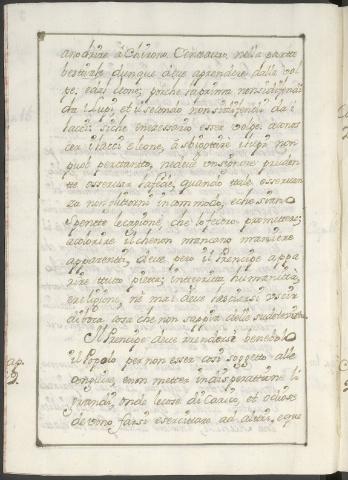 an drire à Chirone Centauro, nella parte
bestiale dunque deve aprendere dalla vol
pe, e dal leone; perche il primo non si difende
da i Lupi et il secondo non si difende da i
lacci, si che è necessario esser volpe à conos
cer i lacci e leone, à sbigottire i lupi non
puol pertanto, ne deve un signore pruden
te osservar la fede, quando tale osservan
za non gli torni in commodo, e che siano
spente le cagioni, che lo fecero promettere;
à colorire il che non mancano maniere
apparenti, deve però il Prencipe appa
rire tutto pietà, integrità humanità,
e religione, ne mai deve lasciarsi uscir
di bocca cosa che non sappia delle sudette
Il Prencipe deve rendersi benevolo
il Popolo per non esser così soggetto alle
congiure, e non metter in disperatione li
grandi, onde le cose di carico, et odiose
devono farsi esercitare ad altri, e que
Cap.
9.